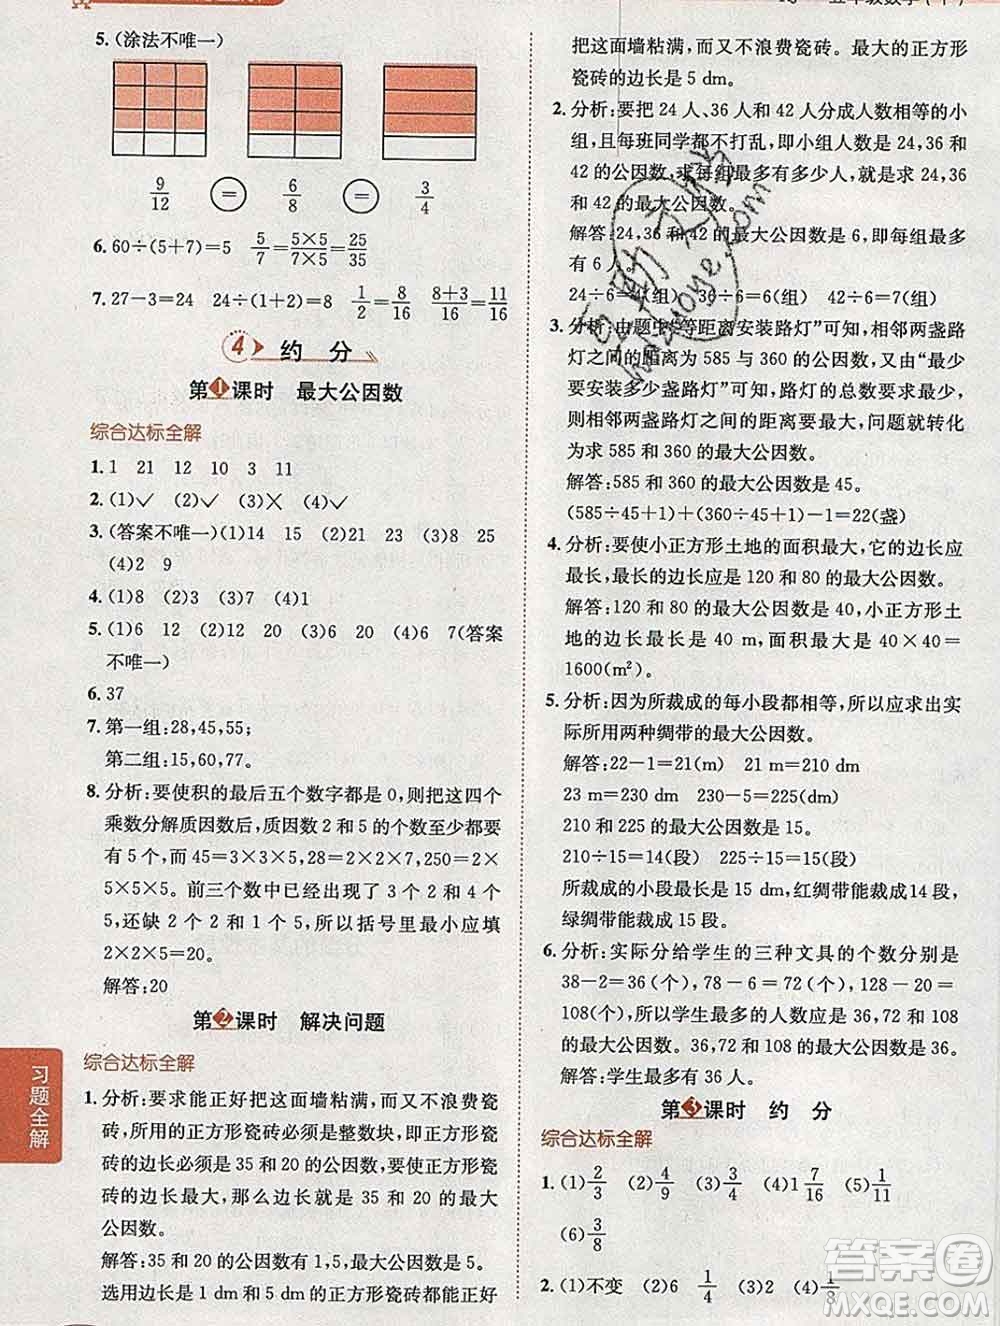 5.(涂法不唯一)
9/12 = 6/8 = 3/4
6. 60÷(5+7)=5 5/7=5×5/7×5=25/35
7. 27-3=24 24÷(1+2)=8 1/2=8/16 8+3/16=11/16
4 约 分
第1课时 最大公因数
综合达标全解
1. 1 21 12 10 3 11
2. (1)✓ (2)✓ (3)× (4)×
3. (答案不唯一)(1)14 15 (2)21 23 (3)8 25
(4)2 9
4. (1)8 (2)17 (3)24 (4)1
5. (1)6 12 (2)19 20 (3)6 20 (4)6 7(答案
不唯一)
6. 37
7. 第一组:28,45,55;
第二组:15,60,77。
8. 分析:要使积的最后五个数字都是0,则把这四个
乘数分解质因数后,质因数2和5的个数至少都要
有5个,而45=3×3×5,28=2×2×7,250=2×
5×5×5。前三个数中已经出现了3个2和4个5,
还缺2个2和1个5,所以括号里最小应填
2×2×5=20。
解答:20
第2课时 解决问题
综合达标全解
1. 分析:要求能正好把这面墙粘满,而又不浪费瓷
砖,所用的正方形瓷砖必须是整数块,即正方形
瓷砖的边长必须是35和20的公因数,要使正方
形的边长最大,那么边长就是35和20的最大
公因数。
解答:35和20的公因数有1,5,最大公因数是5。
选用边长是1 dm和5 dm的正方形瓷砖都能正好
习题全解
把这面墙粘满,而又不浪费瓷砖。最大的正方形
瓷砖的边长是5 dm。
2. 分析:要把24人、36人和42人分成人数相等的小
组,且每班同学都不打乱,即小组人数是24,36和
42的公因数,求每组最多有多少人,就是求24,
36和42的最大公因数。
解答:24,36和42的最大公因数是6,即每组最多
有6人。
24÷6=4(组) 36÷6=6(组) 42÷6=7(组)
3. 分析:由题中“等距离安装路灯”可知,相邻两盏路
灯之间的距离为585与360的公因数,又由“最少
要安装多少盏路灯”可知,路灯的总数要求最少,
则相邻两盏路灯之间的距离要最大,问题就转化
为求585和360的最大公因数。
解答:585和360的最大公因数是45。
(585÷45+1)+(360÷45+1)-1=22(盏)
4. 分析:要使小正方形土地的面积最大,它的边长应
最长,最长的边长应是120和80的最大公因数。
解答:120和80的最大公因数是40,小正方形土
地的边长最长是40 m,面积最大是40×40=
1600(m²)。
5. 分析:因为所裁成的每小段都相等,所以应求出实
际所用两种绸带的最大公因数。
解答:22-1=21(m) 21 m=210 dm
23 m=230 dm 230-5=225(dm)
210和225的最大公因数是15。
210÷15=14(段) 225÷15=15(段)
所裁成的小段最长是15 dm,红绸带能裁成14段,
绿绸带能裁成15段。
6. 分析:实际分给学生的三种文具的个数分别是
38-2=36(个),78-6=72(个),128-20=
108(个),所以学生最多的人数应是36,72和108
的最大公因数。36,72和108的最大公因数是36。
解答:学生最多有36人。
第3课时 约 分
综合达标全解
1. (1)2/3 (2)4/9 (3)3/4 (4)1 7/16 (5)1/11
(6)3/8
2. (1)不变 (2)6 1/4 (3)2 (4)1/8
答案圈
MXQE.COM